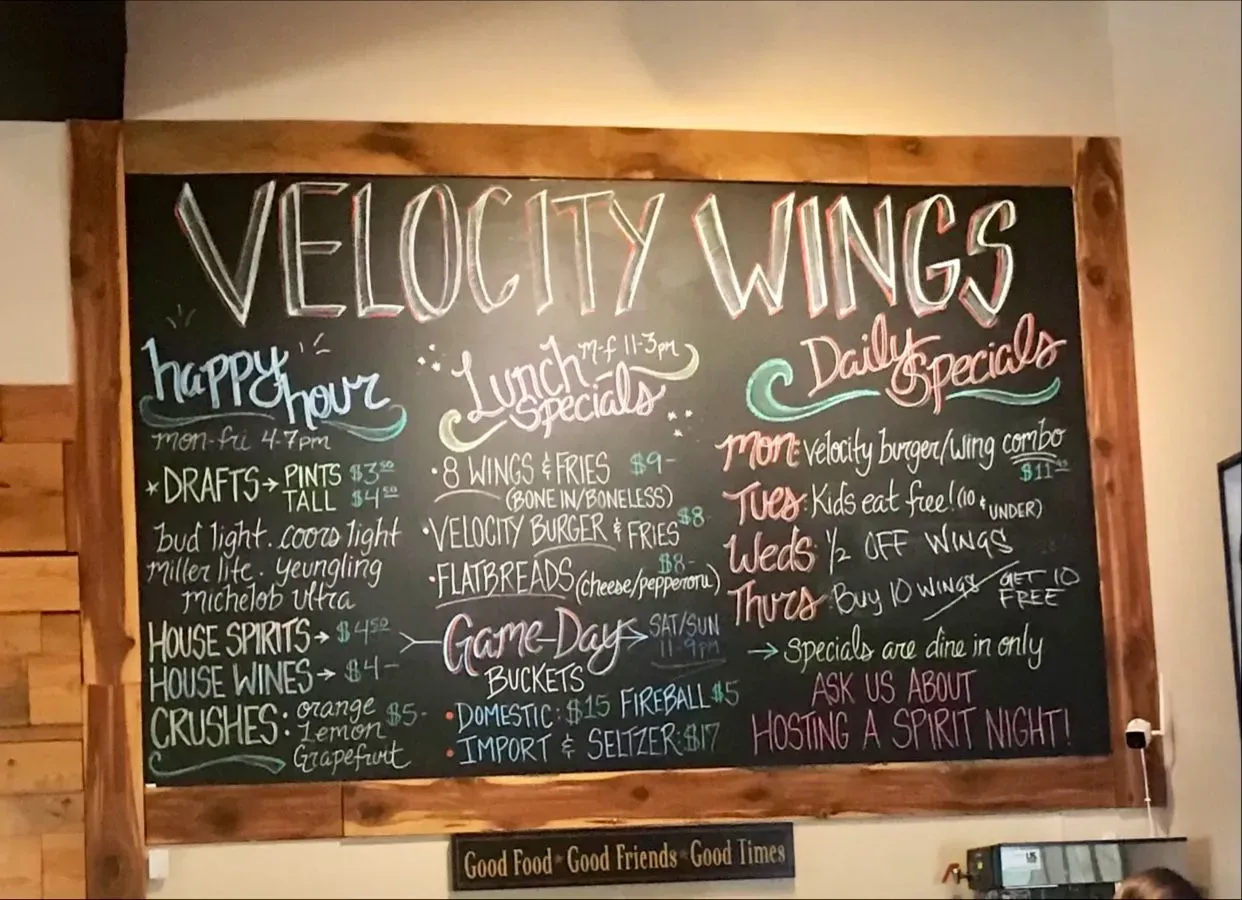 VELOCITY WINGS
happy hour
mon-fri 4-7pm
* DRAFTS → PINTS $3.50
TALL $4.50
bud light. coors light
Miller lite. yeungling
michelob ultra
HOUSE SPIRITS → $4.50
HOUSE WINES → $4-
CRUSHES: orange $5-
Lemon
Grapefruit
Lunch m-f 11-3pm
Specials
• 8 WINGS & FRIES $9-
(BONE IN/BONELESS)
• VELOCITY BURGER & FRIES $8-
• FLATBREADS (cheese/pepperoni) $8-
Game-Day SAT/SUN
11-9pm
BUCKETS
• DOMESTIC: $15 FIREBALL $5
• IMPORT & SELTZER: $17
Daily Specials
Mon: velocity burger/wing combo
$11
Tues: Kids eat free! (10 & UNDER)
Weds: 1/2 OFF WINGS
Thurs: Buy 10 WINGS / GET 10 FREE
→ Specials are dine in only
ASK US ABOUT
HOSTING A SPIRIT NIGHT!
Good Food • Good Friends • Good Times